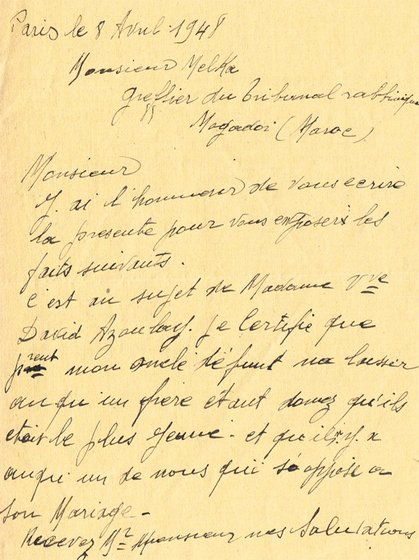 Paris le 8 Avril 1948
Monsieur Melka
greffier du tribunal rabbinique
Mogador (Maroc)
Monsieur
J'ai l'honneur de vous ecrire
la presente pour vous exposer les
faits suivants.
c'est au sujet de Madame Vve
David Azoulay. Je certifie que
mon oncle défunt na laisser
auqu'un frère etant donez qu'ils
etait le plus jeune. et qu'il n'y a
auqu'un de nous qui s'oppose a
son Mariage -
Recevez Mr Monsieur nos Salutations